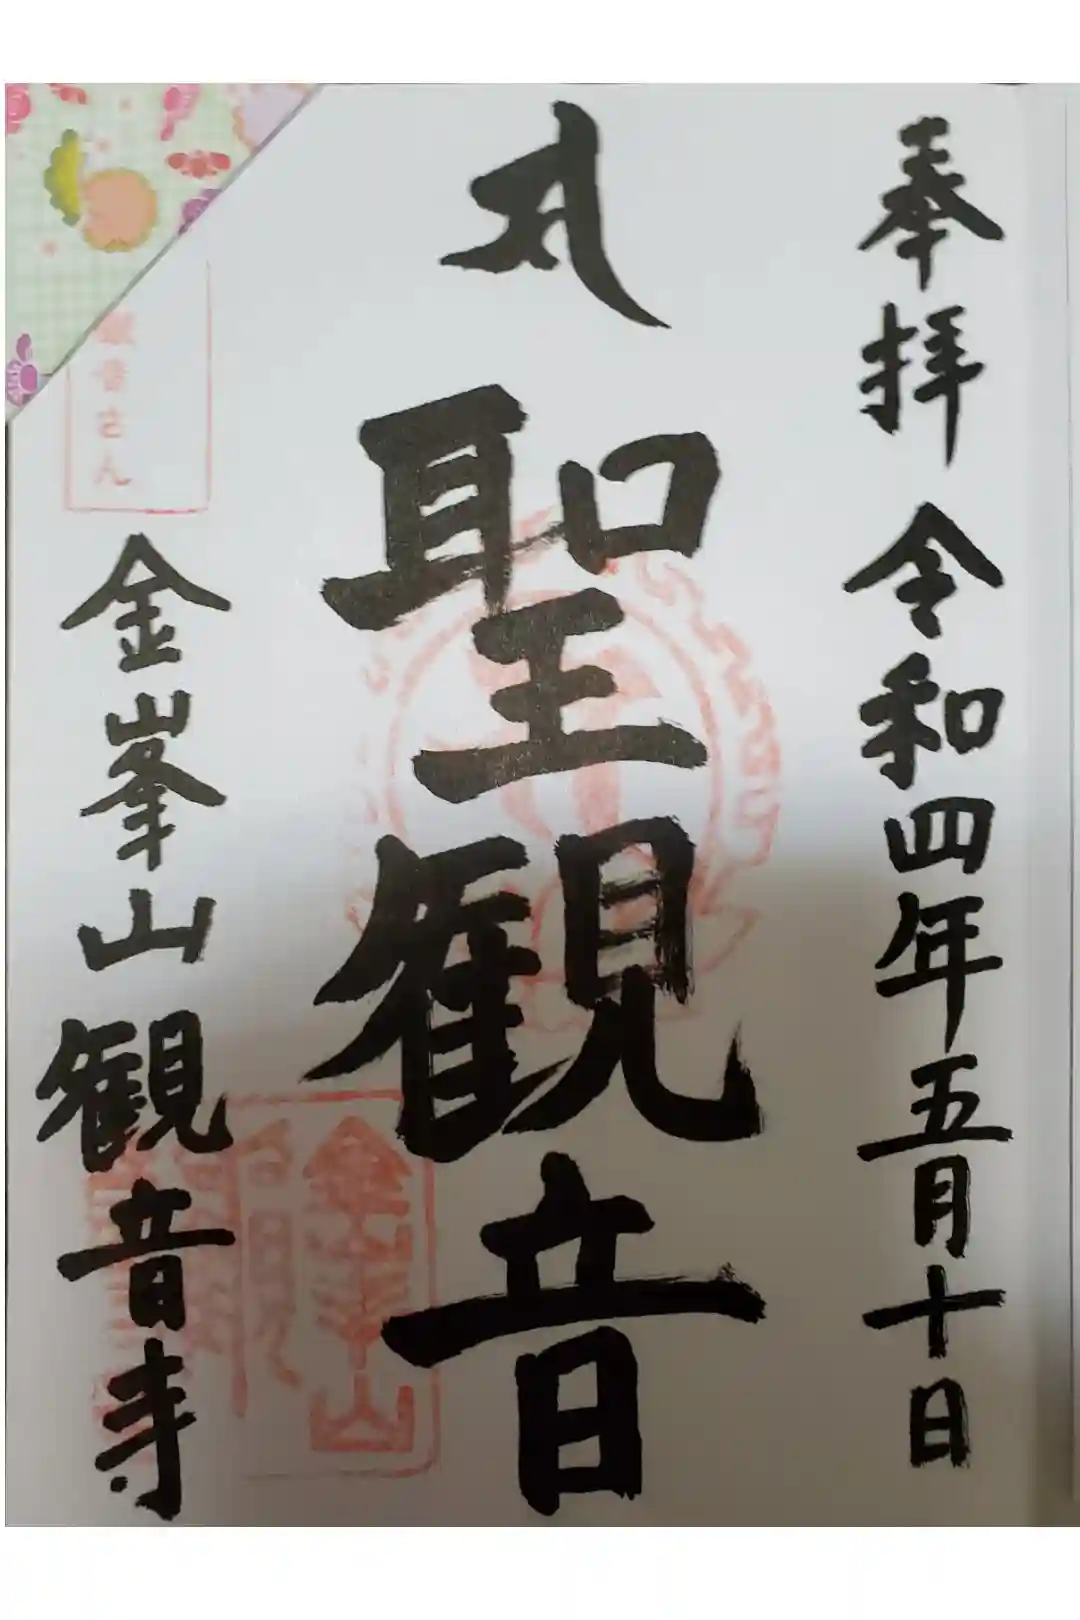 奉拝 令和四年五月十日
聖観音
観音さん
金峯山観音寺